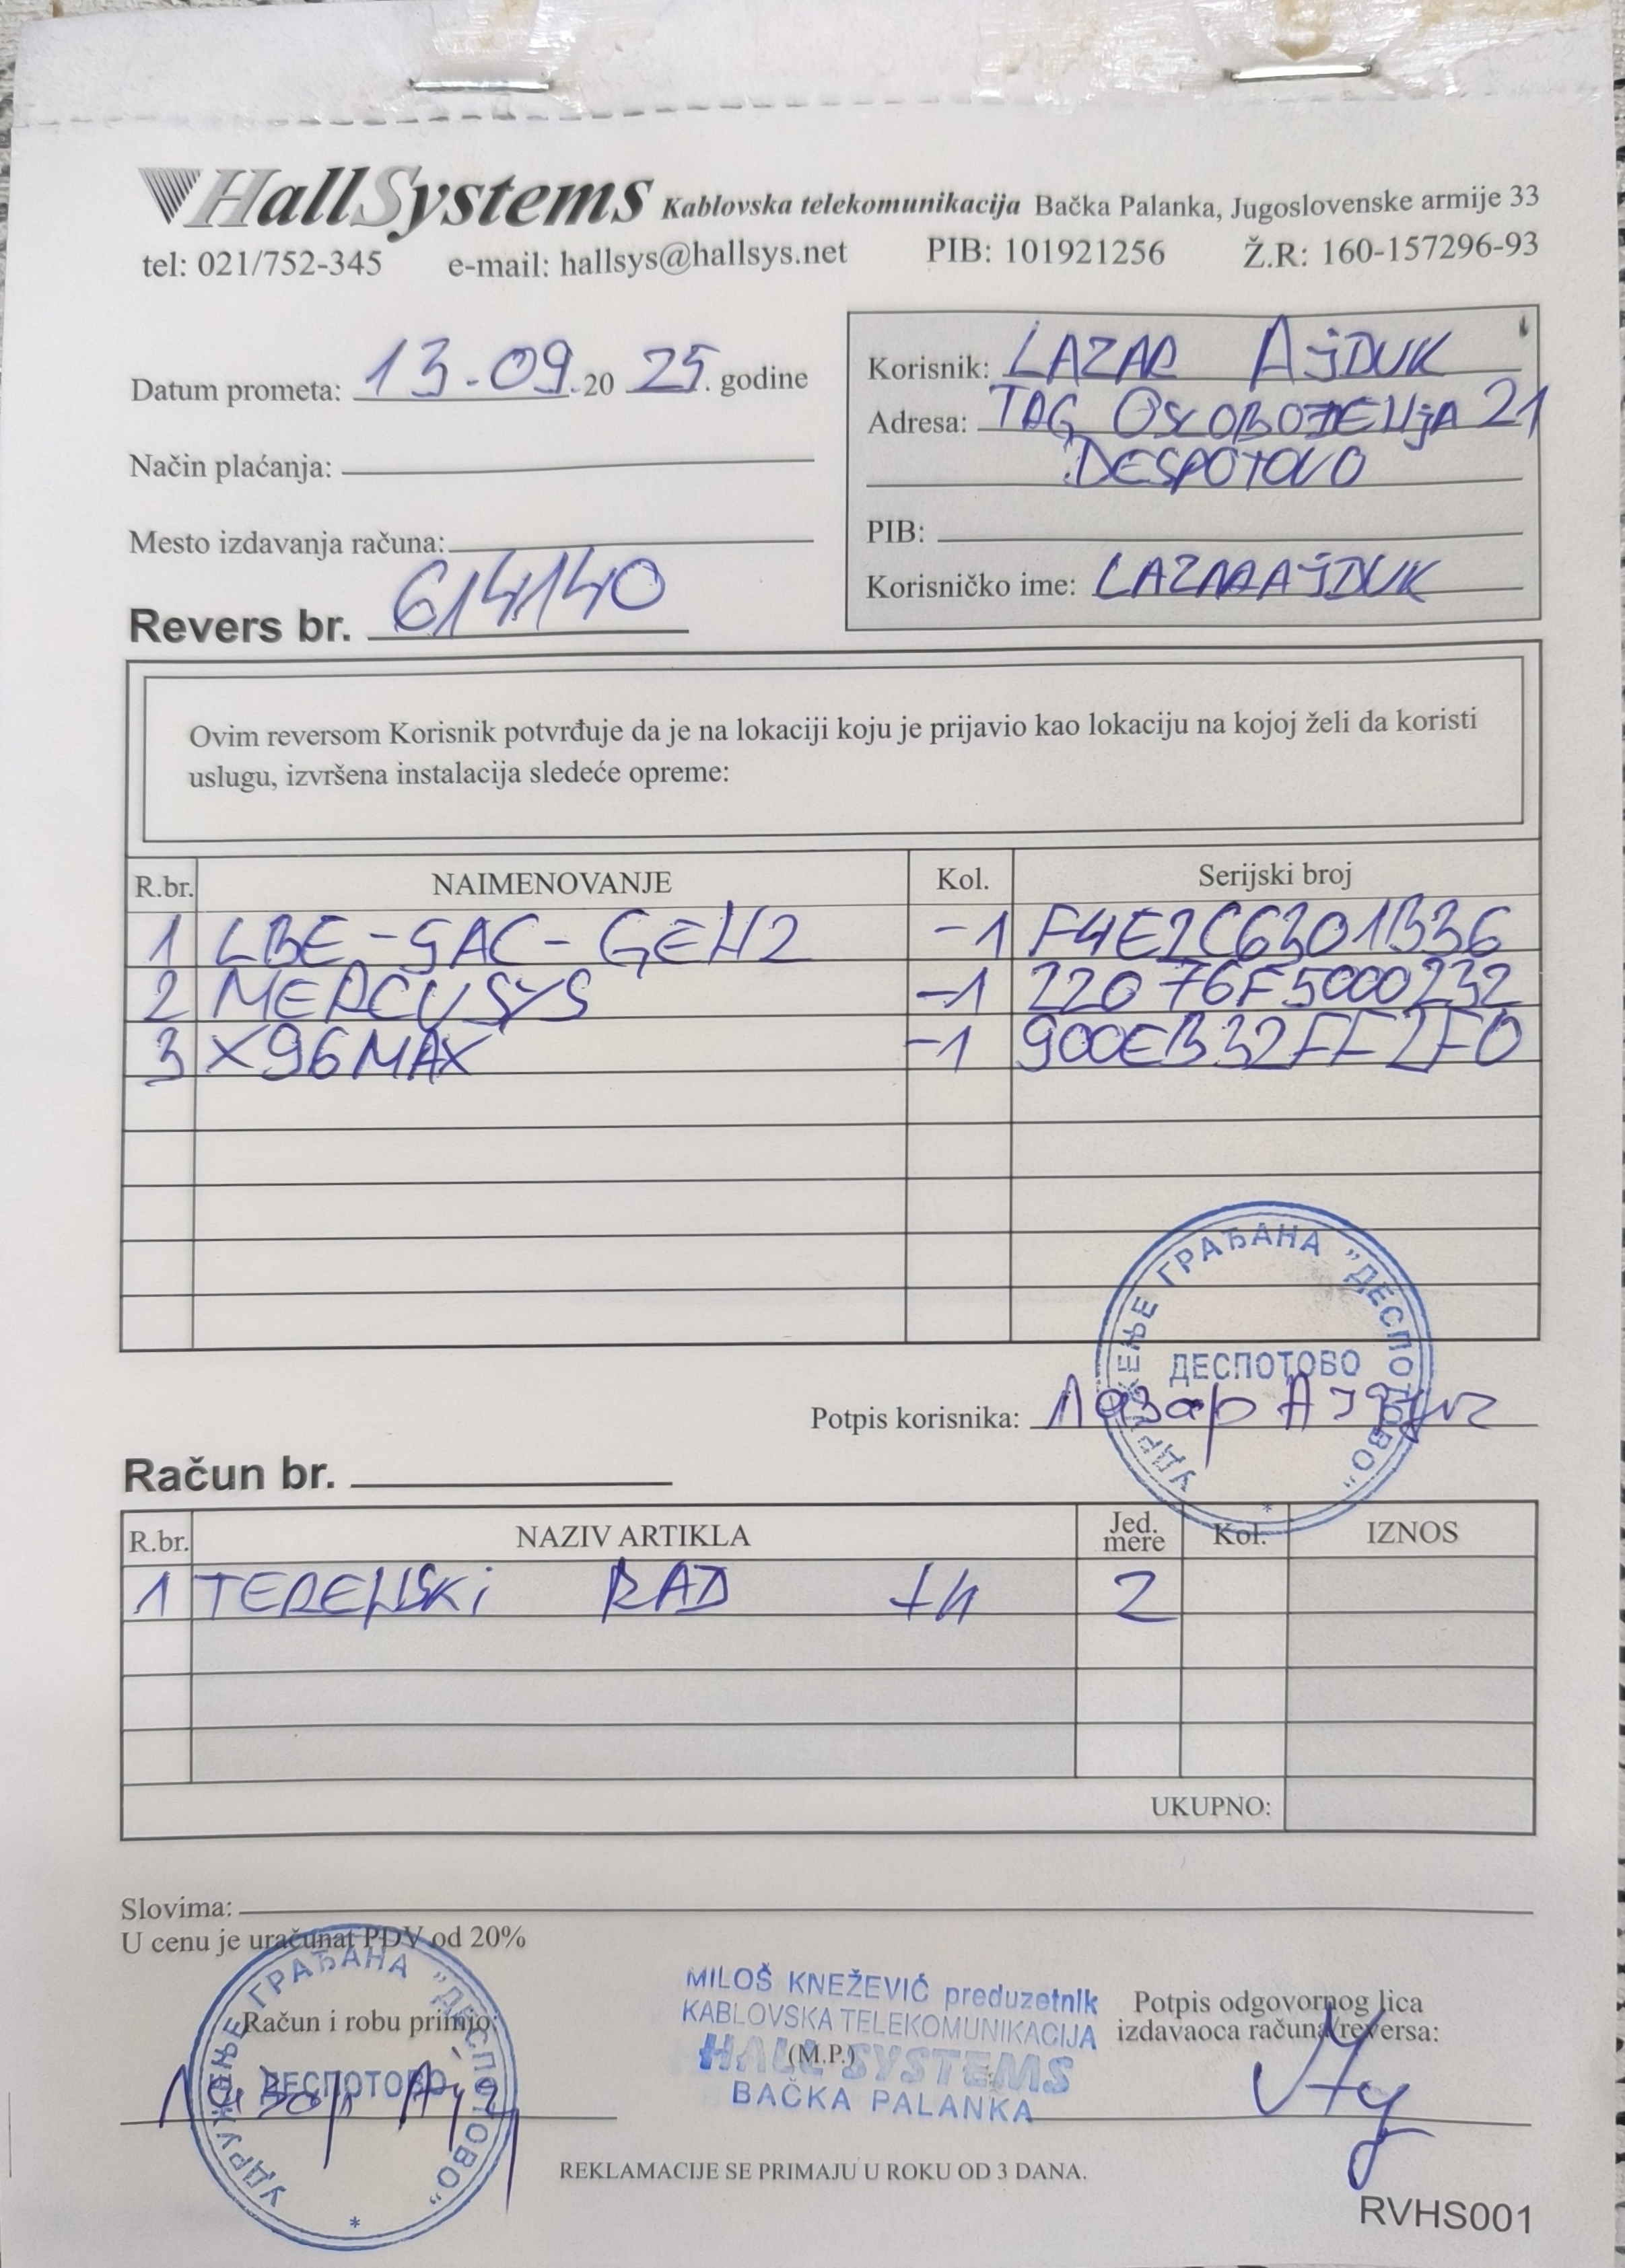 HallSystems Kablovska telekomunikacija Bačka Palanka, Jugoslovenske armije 33
tel: 021/752-345 e-mail: hallsys@hallsys.net PIB: 101921256 Ž.R: 160-157296-93
Datum prometa: 13.09.20 25. godine
Način plaćanja:
Mesto izdavanja računa:
Revers br. 614140
Korisnik: LAZAR AjDUK
Adresa: TRG OSLOBOĐENjA 21
DESPOTOVO
PIB:
Korisničko ime: LAZARAjDUK
Ovim reversom Korisnik potvrđuje da je na lokaciji koju je prijavio kao lokaciju na kojoj želi da koristi
uslugu, izvršena instalacija sledeće opreme:
R.br. NAIMENOVANJE Kol. Serijski broj
1 LBE-5AC-GEN2 -1 F4E2C6301B36
2 MERCUSYS -1 22076F5000232
3 X96MAX -1 900EB32FF2F0
УДРУЖЕЊЕ ГРАЂАНА "ДЕСПОТОВО"
ДЕСПОТОВО
Potpis korisnika: Лазар Ајдук
Račun br.
R.br. NAZIV ARTIKLA Jed. mere Kol. IZNOS
1 TERENSKi RAD 2
UKUPNO:
Slovima:
U cenu je uračunat PDV od 20%
УДРУЖЕЊЕ ГРАЂАНА "ДЕСПОТОВО"
ДЕСПОТОВО
Račun i robu primio:
Лазар
MILOŠ KNEŽEVIĆ preduzetnik
KABLOVSKA TELEKOMUNIKACIJA
(M.P.)
HALL SYSTEMS
BAČKA PALANKA
Potpis odgovornog lica
izdavaoca računa/reversa:
REKLAMACIJE SE PRIMAJU U ROKU OD 3 DANA.
RVHS001